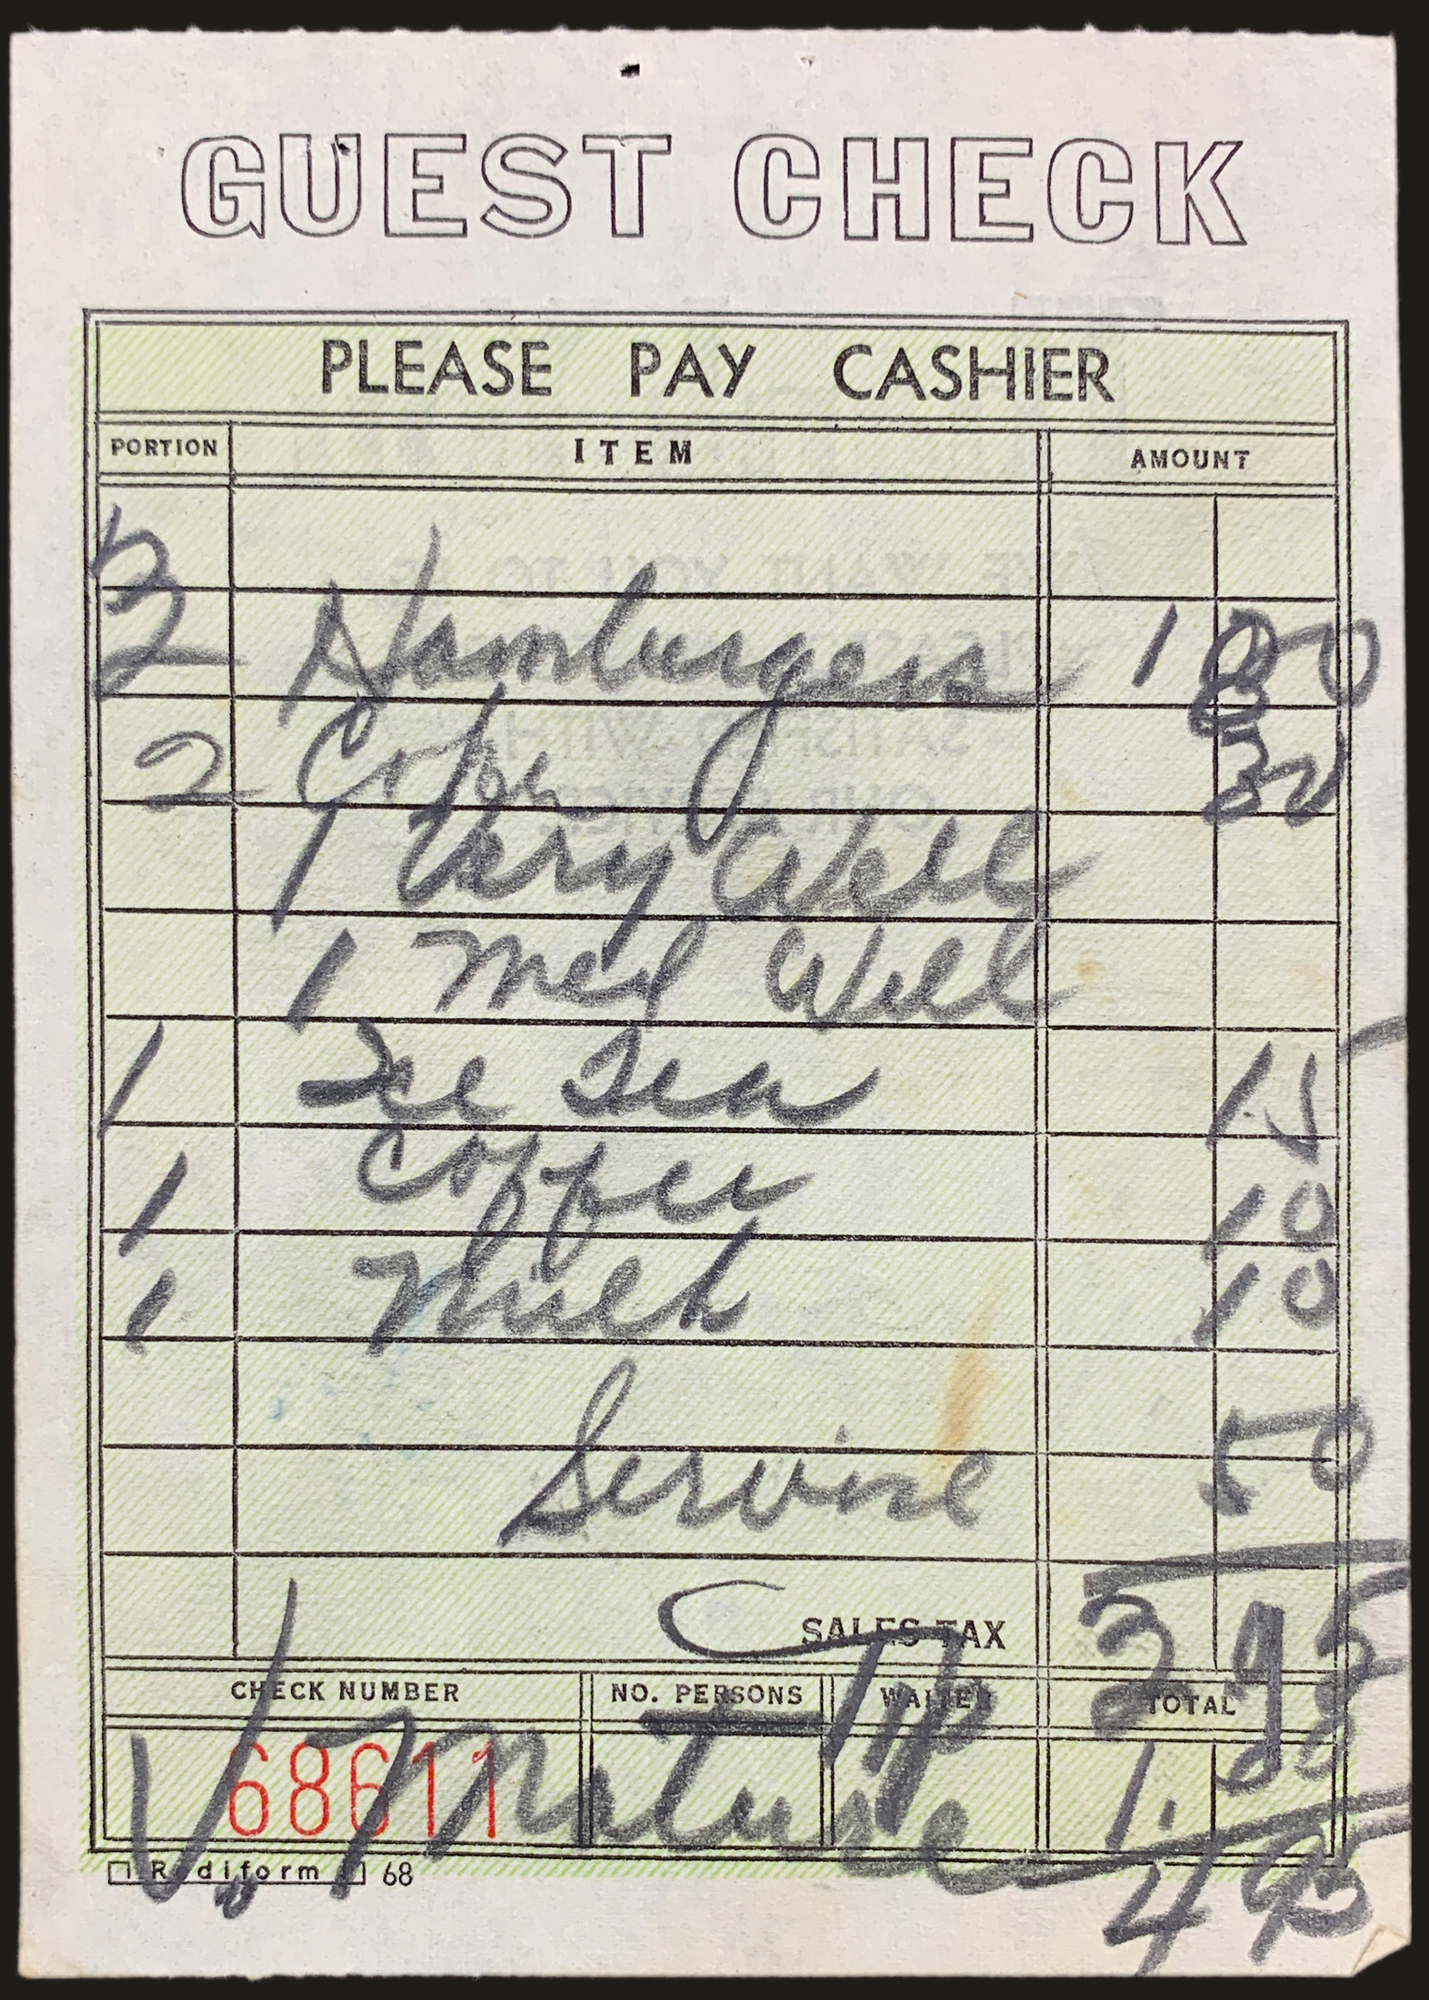 GUEST CHECK
PLEASE PAY CASHIER
PORTION ITEM AMOUNT
2 Hamburgers 1 80
2 Coke
1 Very Well
1 Med Well
1 Ice Tea 15
1 Coffee 10
1 Milk 10
Service 50
SALES TAX 3 95
CHECK NUMBER NO. PERSONS WAITER TOTAL
Tip 1.00
68611
V. J. Mature 4 95
Rediform 68